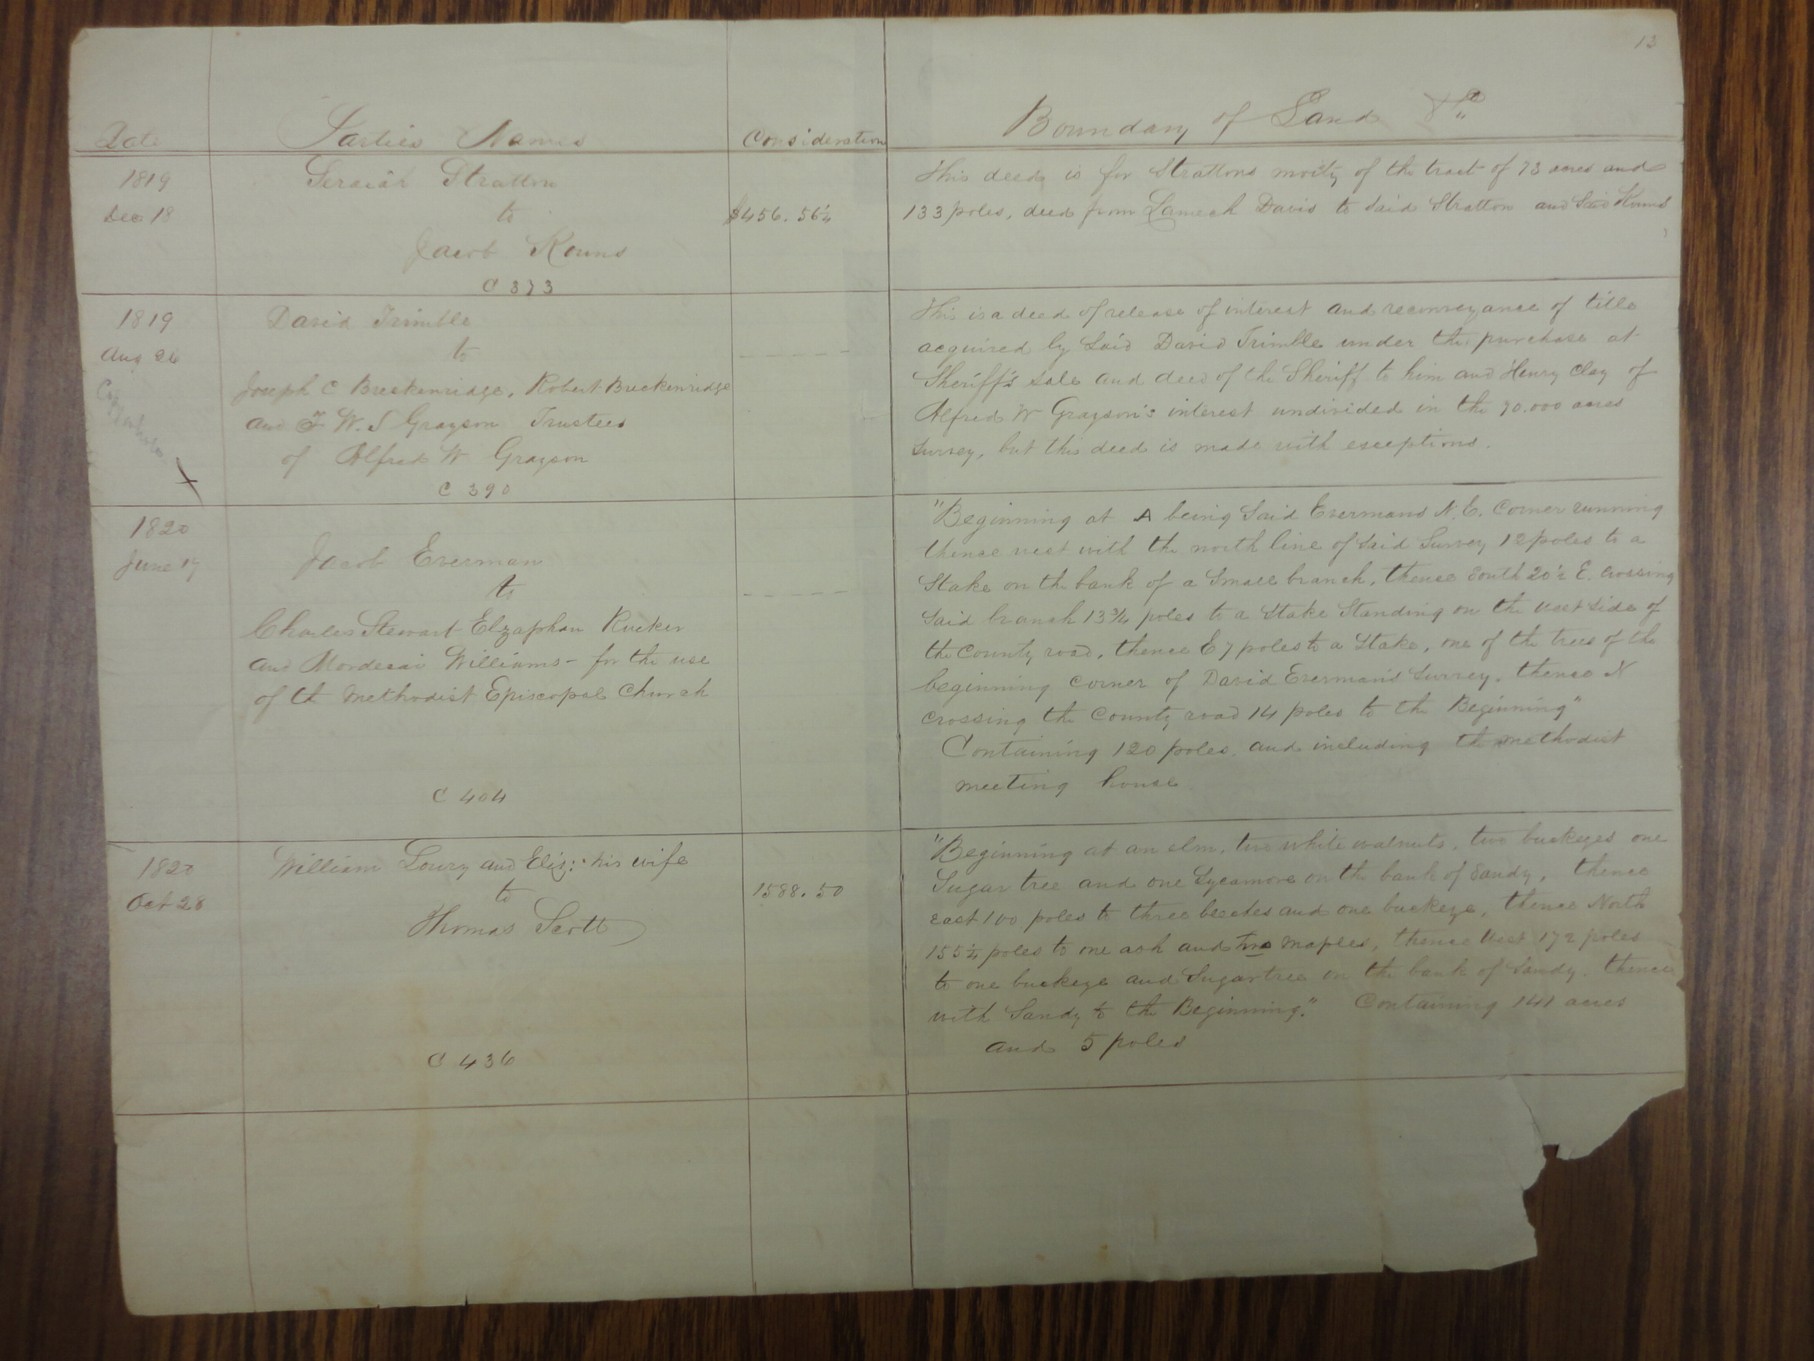 13
Date
Parties Names
Consideration
Boundary of Land &c
1819
Dec 18
Seraiah Stratton
to
Jacob Kouns
C 373
$456.56¼
This deed is for Strattons moity of the tract of 73 acres and
133 poles, deed from Lamech Davis to Said Stratton and Said Kouns
1819
Aug 26
David Trimble
to
Joseph C Breckenridge, Robert Breckenridge
and W. S Grayson Trustees
of Alfred W Grayson
C 390
This is a deed of release of interest and reconveyance of title
acquired by Said David Trimble under the purchase at
Sheriff's sale and deed of the Sheriff to him and Henry Clay of
Alfred W Grayson's interest undivided in the 70.000 acres
Survey, but this deed is made with exceptions.
1820
June 17
Jacob Everman
to
Charles Stewart Elzaphan Rucker
and Mordecai Williams - for the use
of th Methodist Episcopal Church
C 404
"Beginning at A being Said Evermans N.E. Corner running
thence west with the north line of Said Survey 12 poles to a
Stake on the bank of a Small branch, thence South 20½ E. Crossing
Said branch 13¾ poles to a Stake Standing on the west Side of
the County road, thence E 7 poles to a Stake, one of the trees of the
beginning Corner of David Everman's Survey, thence N
Crossing the County road 14 poles to the Beginning"
Containing 120 poles and including the methodist
meeting house
1820
Oct 28
William Lowry and Eliz: his wife
to
Thomas Scott
C 436
1588.50
"Beginning at an elm, two white walnuts, two buckeyes one
Sugar tree and one Sycamore on the bank of Sandy, thence
east 100 poles to three beeches and one buckeye, thence North
155¼ poles to one ash and two maples, thence West 172 poles
to one buckeye and Sugartree on the bank of Sandy. thence
with Sandy to the Beginning." Containing 141 acres
and 5 poles